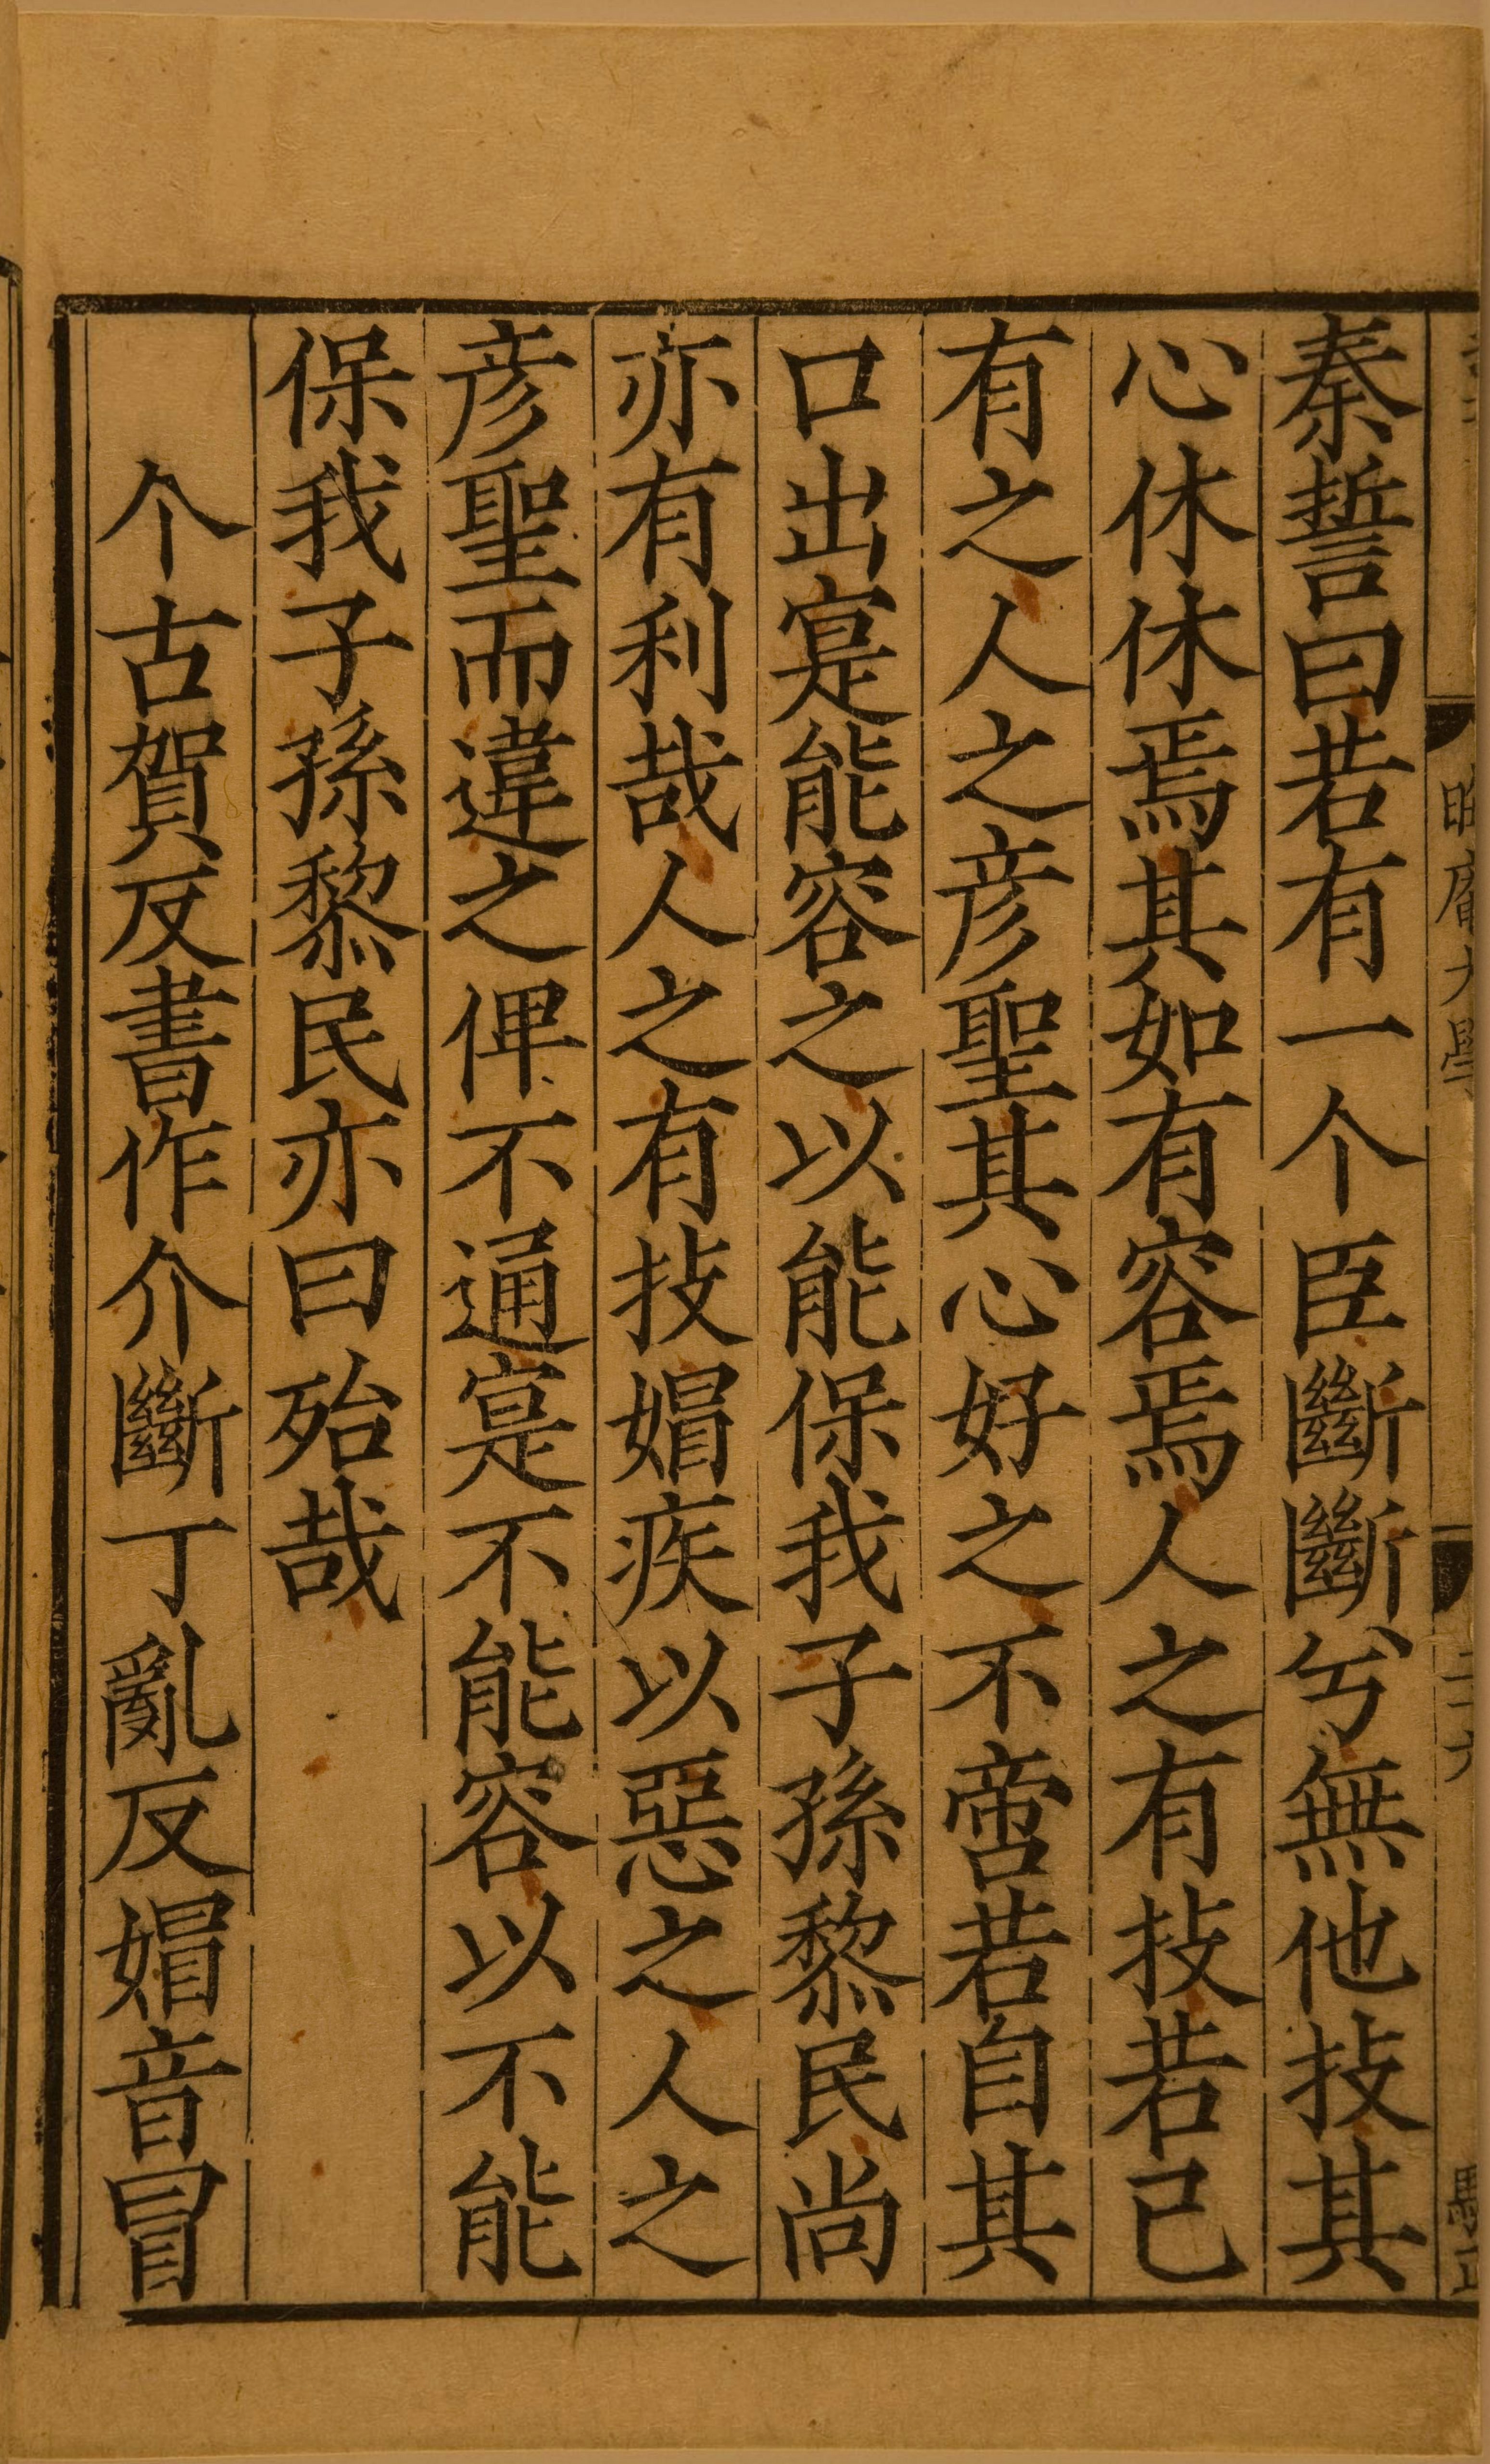 秦誓曰若有一个臣斷斷兮無他技其
心休休焉其如有容焉人之有技若己
有之人之彥聖其心好之不啻若自其
口出寔能容之以能保我子孫黎民尚
亦有利哉人之有技媢疾以惡之人之
彥聖而違之俾不通寔不能容以不能
保我子孫黎民亦曰殆哉
个古賀反書作介斷丁亂反媢音冒